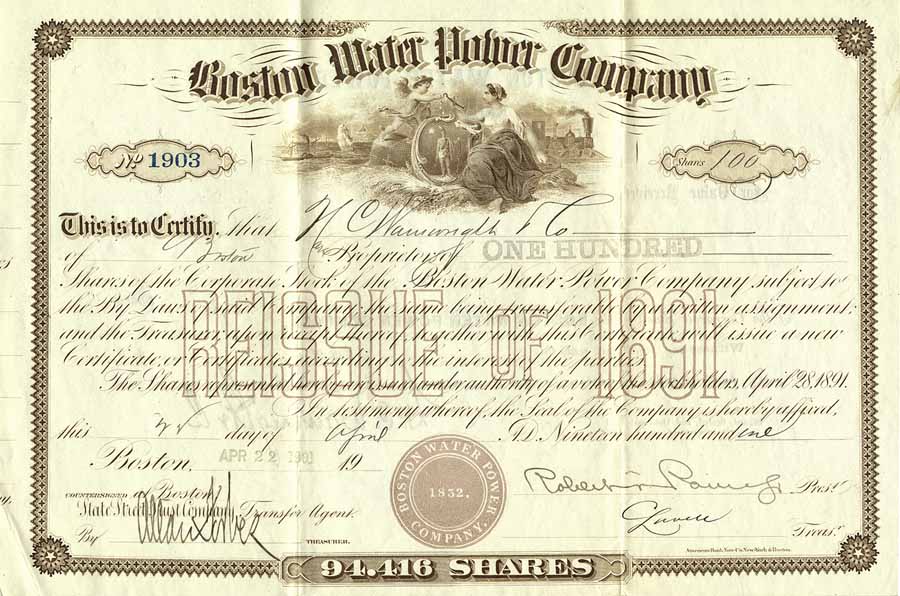 Boston Water Power Company
No 1903
Shares 100
This is to Certify, that H C Wainwright & Co
of Boston are Proprietor of ONE HUNDRED
Shares of the Corporate Stock of the Boston Water Power Company subject to
the By Laws of said Company, the same being transferable by a written assignment:
and the Treasurer upon receipt thereof, together with this Certificate will issue a new
Certificate or Certificates according to the interest of the parties.
REISSUE OF 1891
The Shares represented hereby are issued under authority of a vote of the stockholders, April 28, 1891.
In testimony whereof, the Seal of the Company is hereby affixed,
this 22 day of April A.D. Nineteen hundred and one
Boston, APR 22 1901 19
BOSTON WATER POWER COMPANY.
1832.
Robert T Paine Jr Prest.
COUNTERSIGNED at Boston,
State Street Trust Company, Transfer Agent.
By
TREASURER.
Treasr.
American Bank Note Co. New York & Boston.
94.416 SHARES